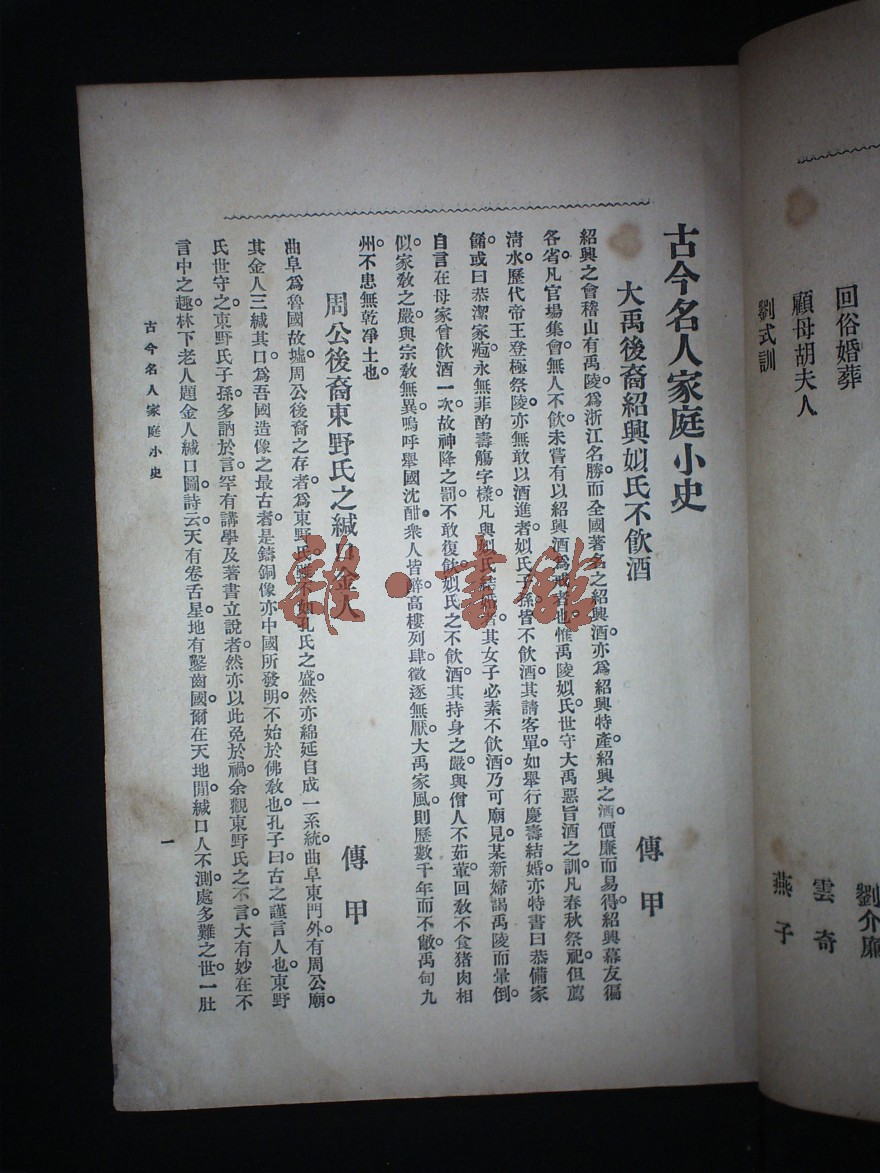 回俗婚葬
劉介廉
顧母胡夫人
雲奇
劉式訓
燕子
古今名人家庭小史
大禹後裔紹興姒氏不飲酒
傳甲
紹興之會稽山有禹陵。爲浙江名勝。而全國著名之紹興酒。亦爲紹興特產。紹興之酒。價廉而易得。紹興幕友徧
各省。凡官場集會。無人不飲。未嘗有以紹興酒爲戒者也。惟禹陵姒氏。世守大禹惡旨酒之訓。凡春秋祭祀。但薦
清水。歷代帝王登極祭陵。亦無敢以酒進者。姒氏子孫。皆不飲酒。其請客單。如舉行慶壽結婚。亦特書曰恭備家
餚。或曰恭潔家庖。永無菲酌壽觴字樣。凡與姒氏結婚者。其女子必素不飲酒。乃可廟見。某新婦謁禹陵而暈倒。
自言在母家曾飲酒一次。故神降之罰。不敢復飲。姒氏之不飲酒。其持身之嚴。與僧人不茹葷。回教不食猪肉相
似。家教之嚴。與宗教無異。嗚呼。舉國沈酣。衆人皆醉。高樓列肆。徵逐無厭。大禹家風。則歷數千年而不敝。禹甸九
州。不患無乾凈土也。
周公後裔東野氏之緘口金人
傳甲
曲阜爲魯國故墟。周公後裔之存者。爲東野氏。雖不如孔氏之盛。然亦綿延自成一系統。曲阜東門外。有周公廟。
其金人三緘其口。爲吾國造像之最古者。是鑄銅像亦中國所發明。不始於佛教也。孔子曰。古之謹言人也。東野
氏世守之。東野氏子孫。多訥於言。罕有講學及著書立說者。然亦以此免於禍。余觀東野氏之不言。大有妙在不
言中之趣。林下老人題金人緘口圖詩云。天有卷舌星。地有鑿齒國。爾在天地閒。緘口人不測。處多難之世。一肚
古今名人家庭小史
一
雜·書館